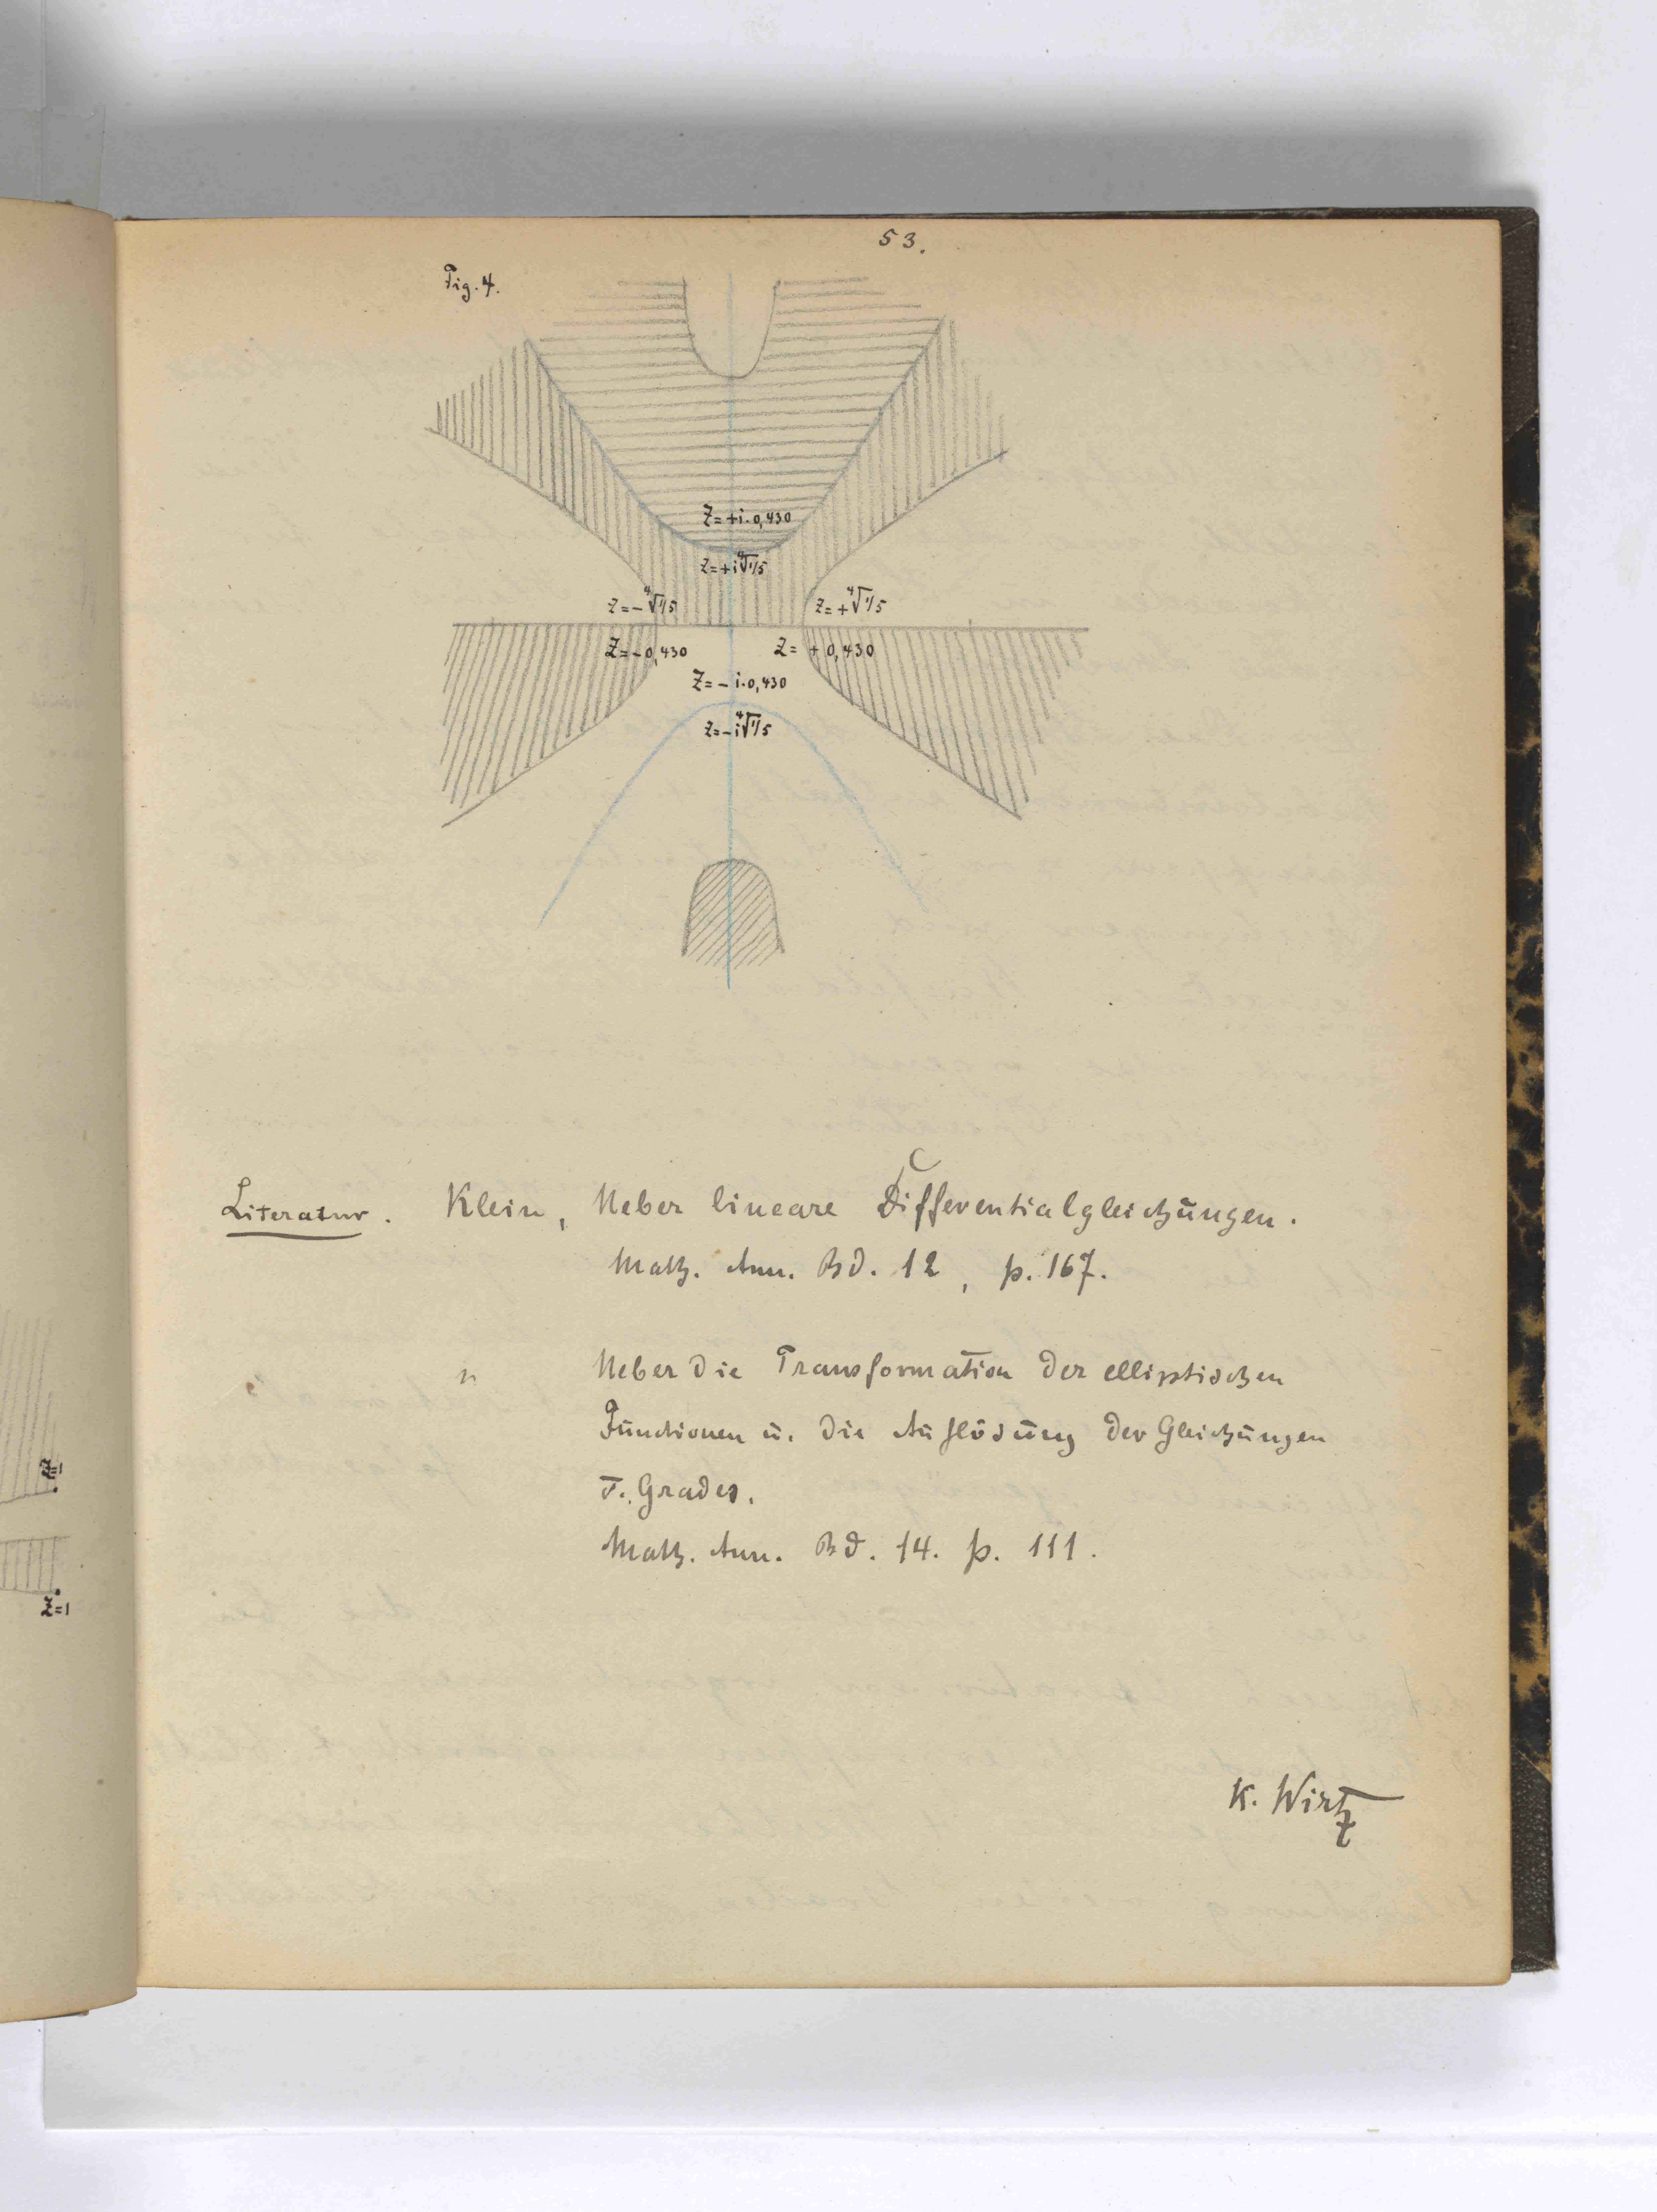 53.
Fig. 4.
Z=+i·0,430
z=+i∜1/5
z=-∜1/5
z=+∜1/5
Z=-0,430
Z=+0,430
Z=-i·0,430
z=-i∜1/5
Literatur. Klein, Ueber lineare Differentialgleichungen.
Math. Ann. Bd. 12, p. 167.
" Ueber die Transformation der elliptischen
Functionen u. die Auflösung der Gleichungen
5. Grades.
Math. Ann. Bd. 14. p. 111.
Z=1
Z=1
K. Wirtz